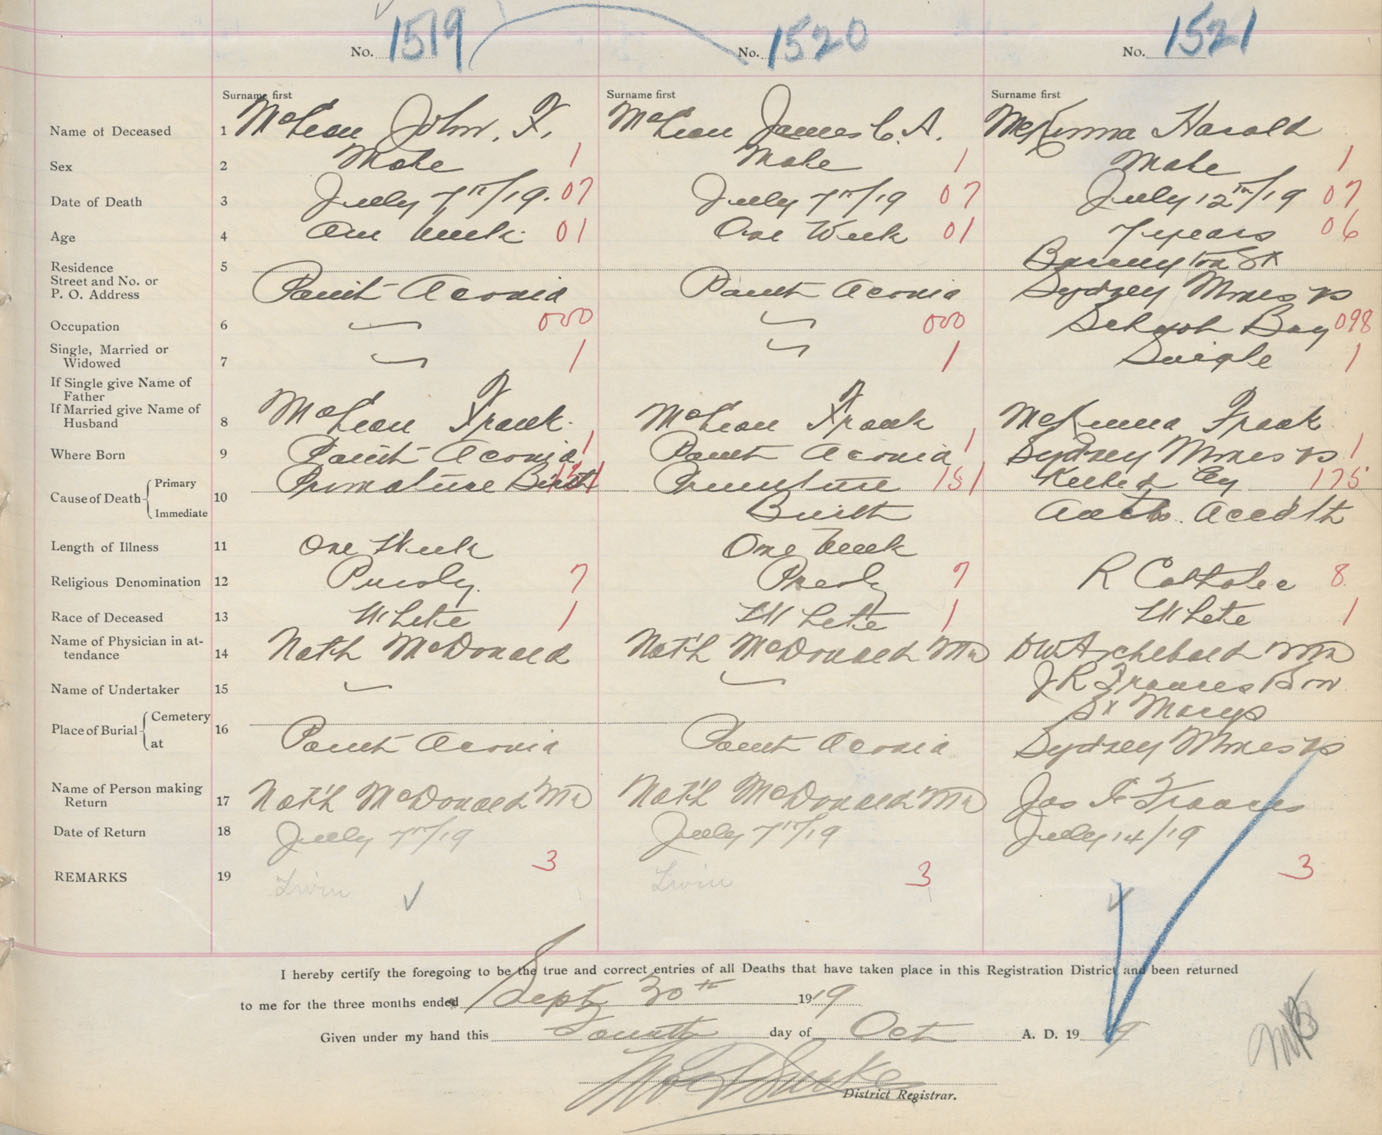 No. 1519 No. 1520 No. 1521
Surname first Surname first Surname first
Name of Deceased 1 McLean John. F. McLean James C. A. McKinna Harold
Sex 2 Male 1 Male 1 Male 1
Date of Death 3 July 7th/19. 07 July 7th/19 07 July 12th/19 07
Age 4 One Week 01 One Week 01 7 years 06
Barrington St
Residence 5
Street and No. or
P. O. Address Point Aconia Point Aconia Sydney Mines NS
Occupation 6 000 000 School Boy 098
Single, Married or
Widowed 7 1 1 Single 1
If Single give Name of
Father
If Married give Name of
Husband 8 McLean Frank. McLean Frank McKinna Frank
Where Born 9 Point Aconia 1 Point Aconia 1 Sydney Mines NS 1
Cause of Death Primary 10 Premature Birth 151 Premature 151 Killed By 175
Immediate Birth Auto. Accidth
Length of Illness 11 One Week One Week
Religious Denomination 12 Presby. 7 Presby 7 R Catholic 8
Race of Deceased 13 White 1 White 1 White 1
Name of Physician in at-
tendance 14 Nath McDonald Nat'h McDonald MD DW Archibald MD
Name of Undertaker 15 J R Frances Son
Place of Burial Cemetery 16 St Marys
at Point Aconia Point Aconia Sydney Mines NS
Name of Person making
Return 17 Nat'h McDonald MD Nat'h McDonald MD Jas F Frances
Date of Return 18 July 7th/19 July 7th/19 July 14/19
REMARKS 19 Twin 3 Twin 3 3
I hereby certify the foregoing to be the true and correct entries of all Deaths that have taken place in this Registration District and been returned
to me for the three months ended Sept 30th 1919
Given under my hand this Fourth day of Oct A. D. 19 19
District Registrar.